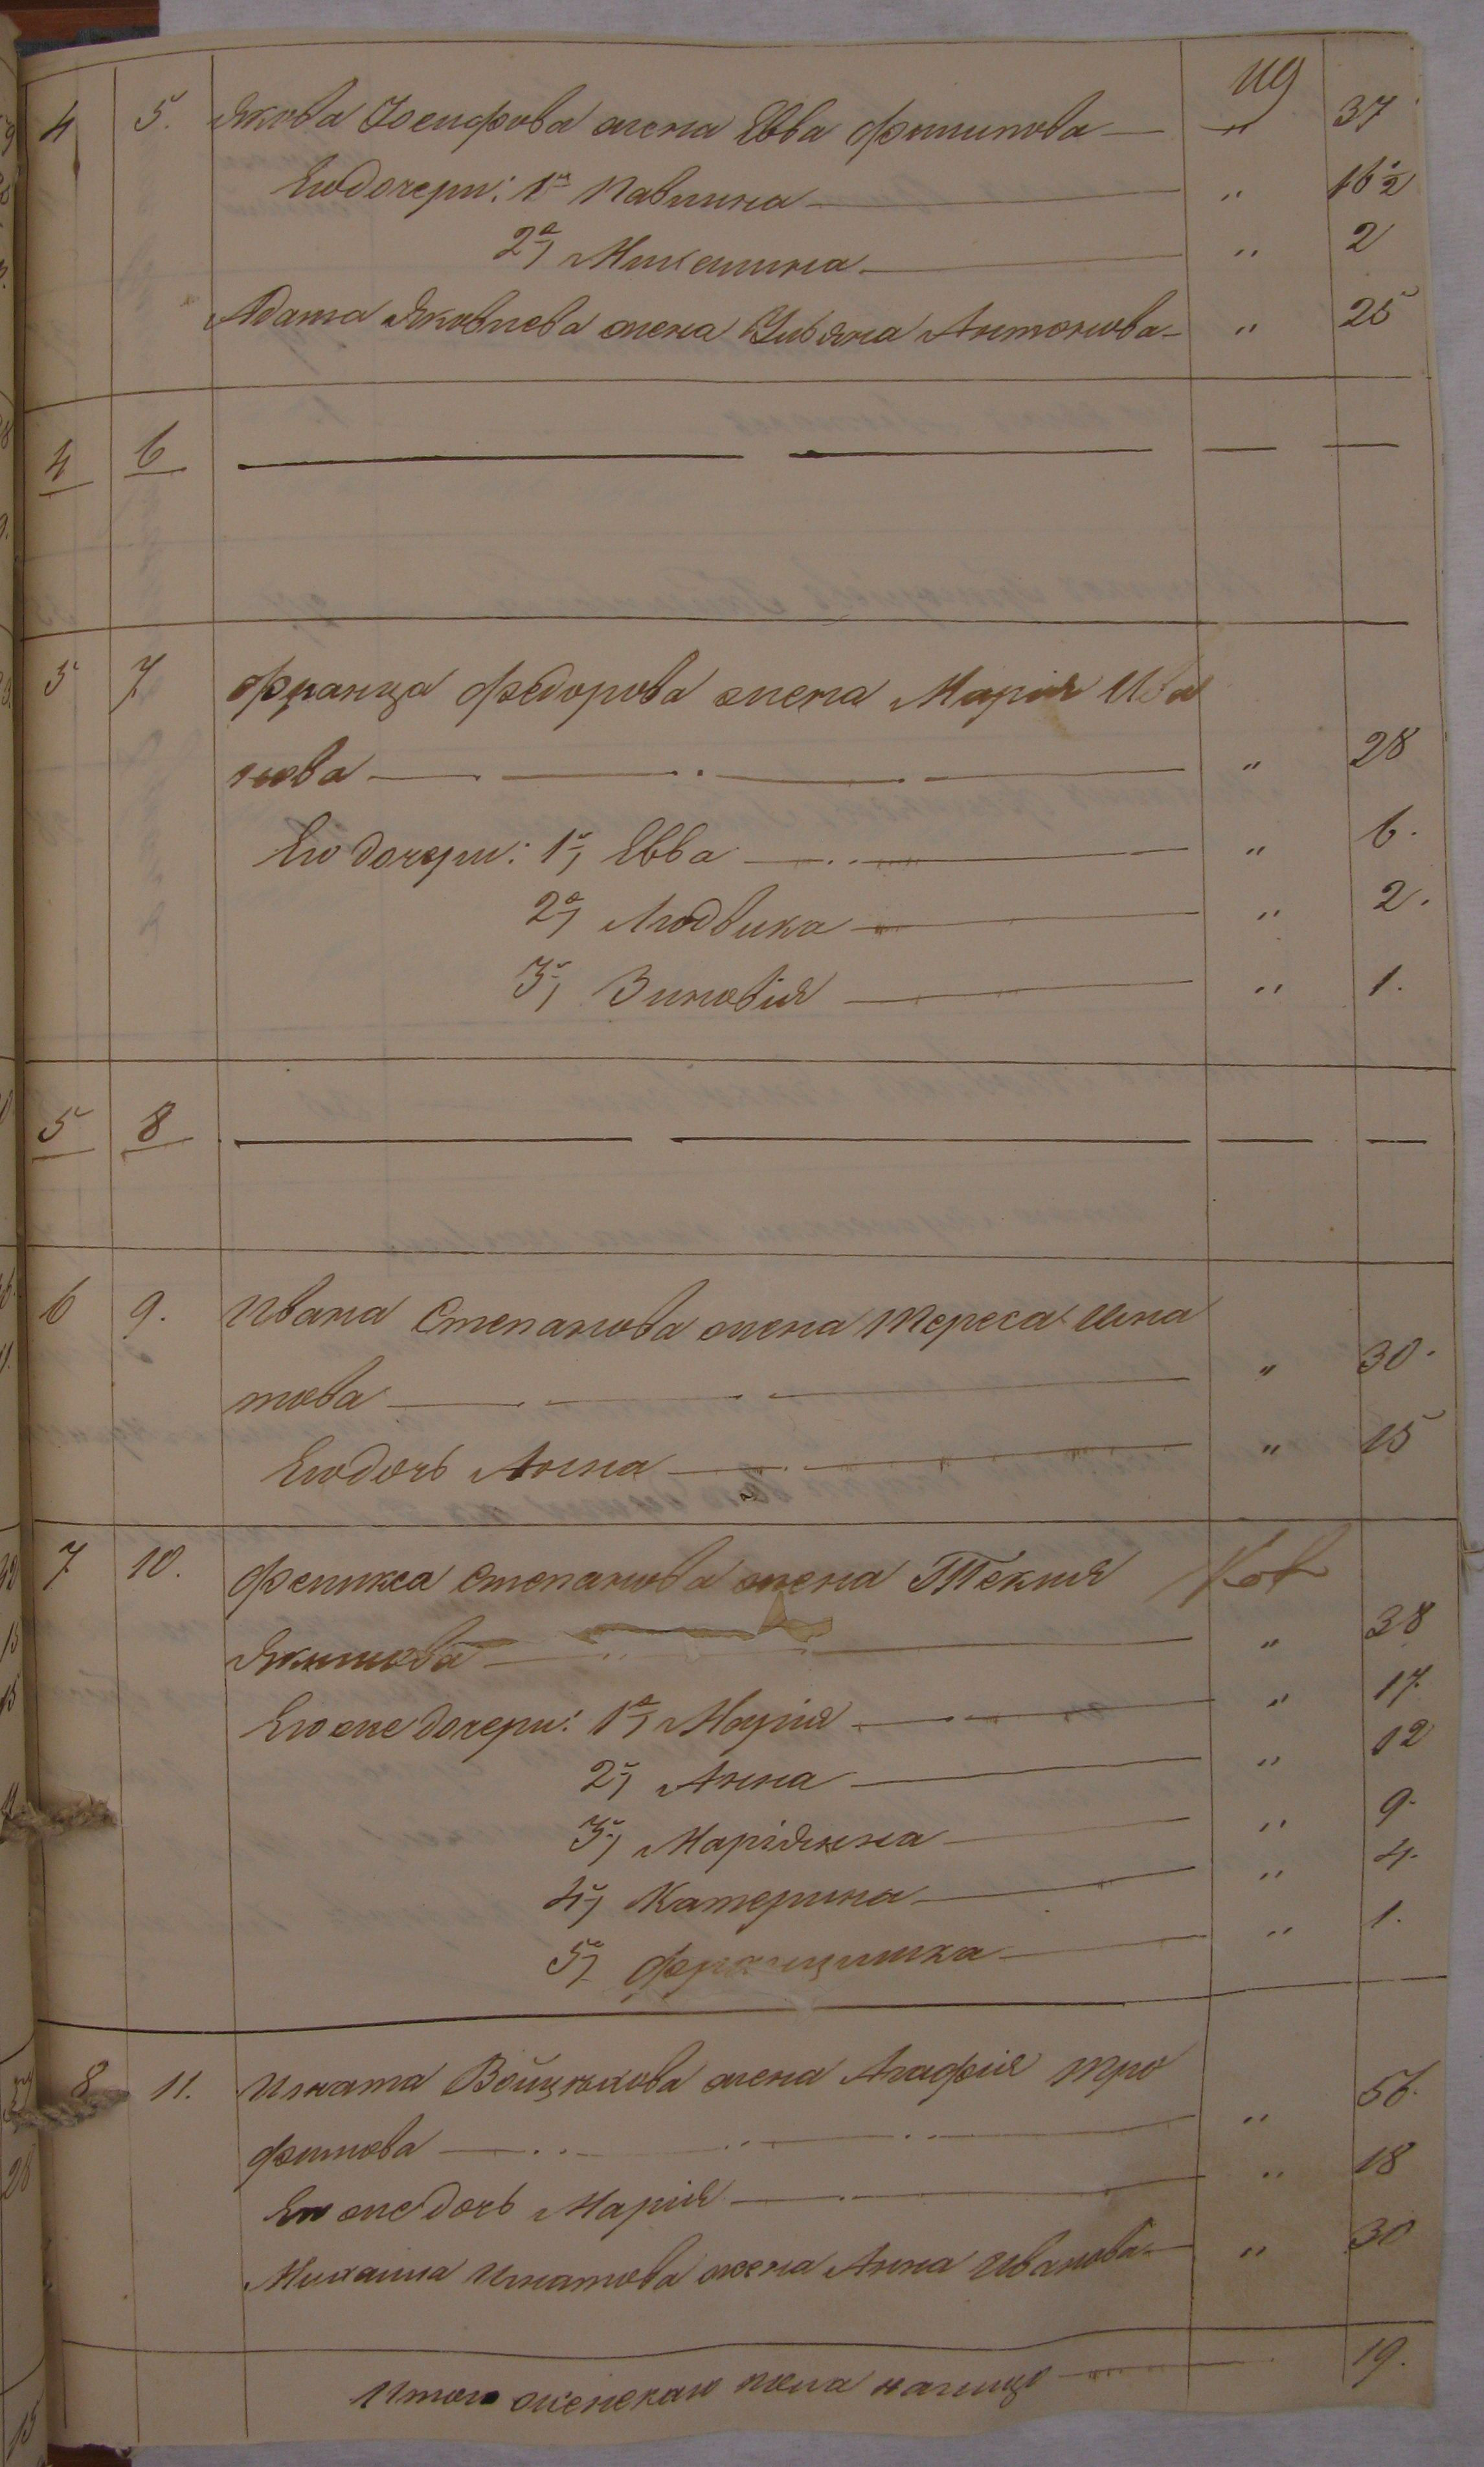 119
4 5. Якова Іосифова жена Евва Филипова — " 37
Его дочери: 1я Павлина — " 16½
2я, Михалина — " 2
Адама Яковлева жена Ульяна Антонова — " 25
4 6 — — — —
5 7 Франца Федорова жена Марія Ива
нова — " 28
Его дочери: 1я, Евва — " 6.
2я, Людвика — " 2.
3я, Зиновія — " 1.
5 8 — — — —
6 9. Ивана Степанова жена Тереса Игна
това — " 30.
Его дочь Анна — " 15
7 10. Феликса Степанова жена Текля
Якимова — " 38
Его же дочери: 1я, Марія — " 17
2я, Анна — " 12
3я, Маріянна — " 9.
4я, Катерина — " 4.
5я, Францишка — " 1.
8 11. Игната Войцехова жена Агафія Тро
фимова — " 56.
Его же дочь Марія — " 18
Михаила Игнатова жена Анна Иванова — " 30
Итого женскаго пола налицо — 19.